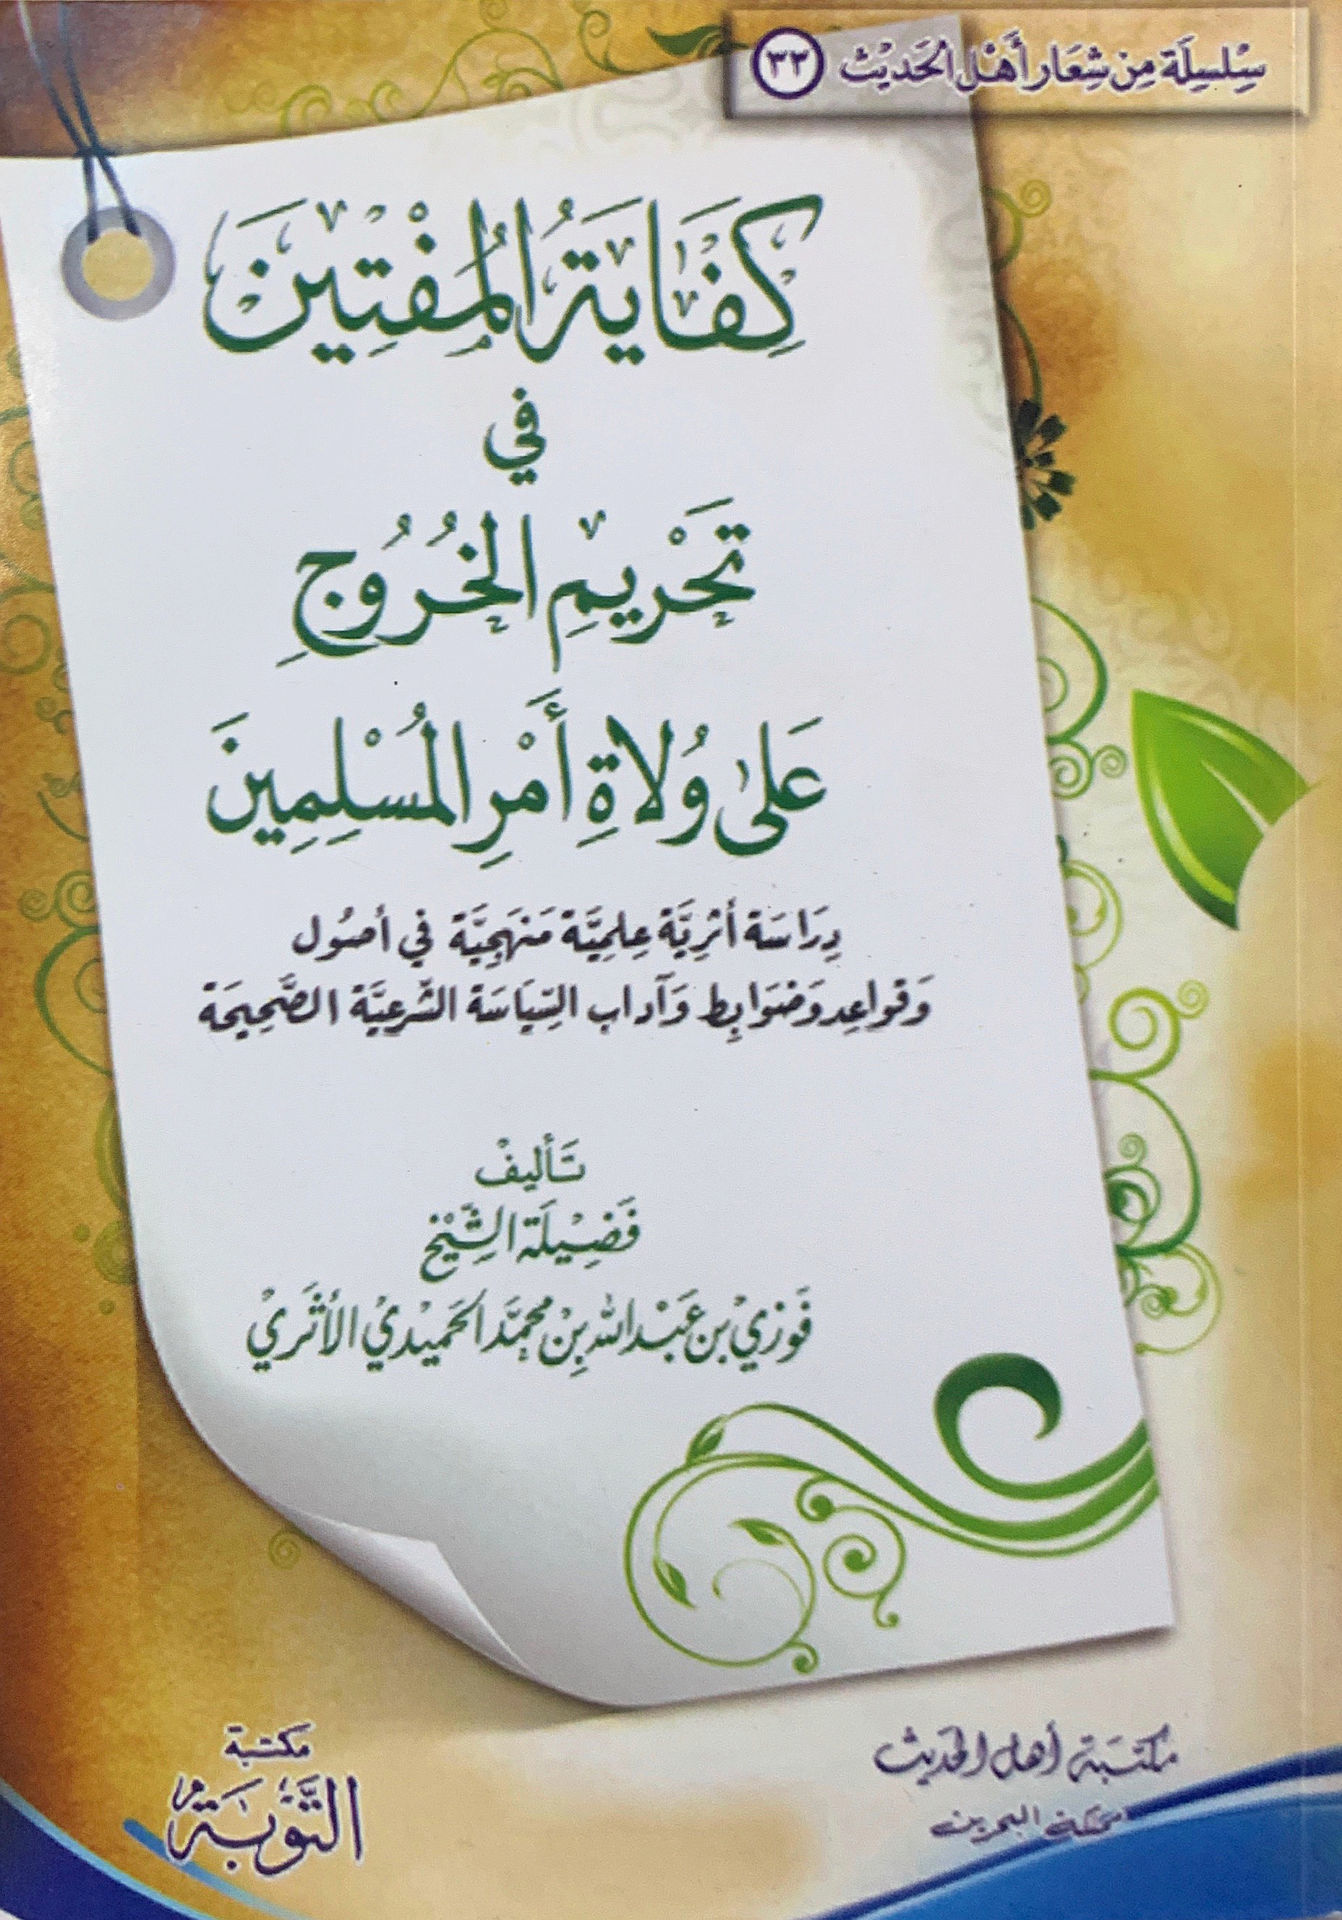 سِلْسِلَة مِنْ شِعَار أَهْلِ الحَدِيْث ٣٣
كِفَايَةُ المُفْتِينَ
في
تَحْرِيمِ الخُرُوجِ
عَلَى وُلَاةِ أَمْرِ المُسْلِمِينَ
دِرَاسَة أَثرِيَّة عِلمِيَّة مَنهَجِيَّة في أصُول
وَقواعِد وَضوَابِط وَآداب السِّيَاسَة الشَّرعِيَّة الصَّحِيحَة
تَأليفْ
فَضِيْلَة الشَّيْخ
فَوْزي بن عَبْد الله بِنْ مُحمَّد الحَمِيْدِيْ الأَثَرِيْ
مكتَبَة أهل الحديث
مملكة البحرين
مكتبة
التَّوْبَة